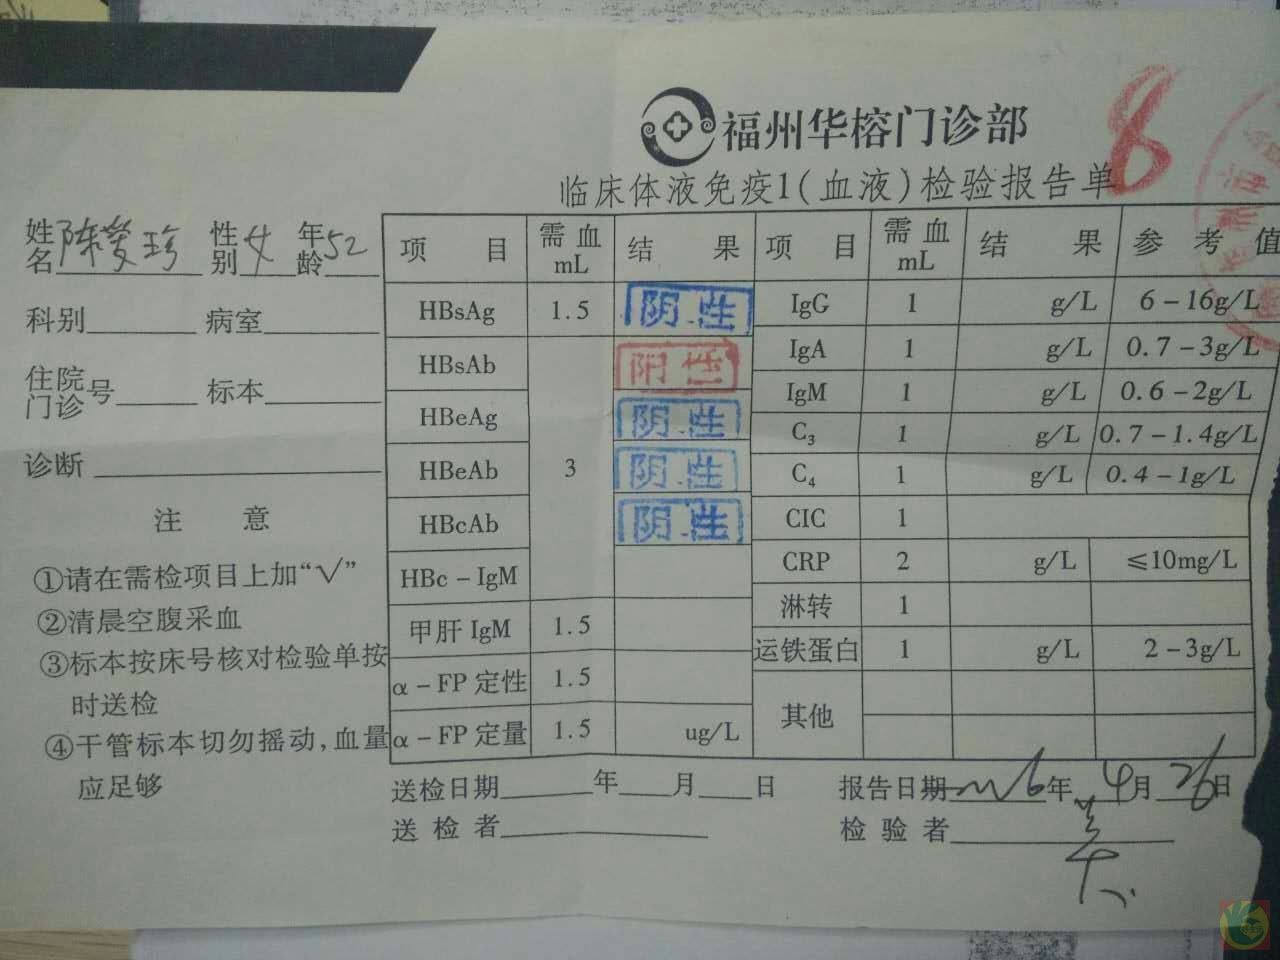 福州华榕门诊部
8
临床体液免疫1(血液)检验报告单
姓名 陈 珍 性别 女 年龄 52
科别 病室
住院门诊号 标本
诊断
注 意
①请在需检项目上加“√”
②清晨空腹采血
③标本按床号核对检验单按
时送检
④干管标本切勿摇动,血量
应足够
项 目 需血mL 结 果 项 目 需血mL 结 果 参 考 值
HBsAg 1.5 阴性 IgG 1 g/L 6-16g/L
HBsAb 阳性 IgA 1 g/L 0.7-3g/L
HBeAg 阴性 IgM 1 g/L 0.6-2g/L
HBeAb 3 阴性 C₃ 1 g/L 0.7-1.4g/L
HBcAb 阴性 C₄ 1 g/L 0.4-1g/L
HBc-IgM CIC 1
甲肝 IgM 1.5 CRP 2 g/L ≤10mg/L
α-FP 定性 1.5 淋转 1
α-FP 定量 1.5 ug/L 运铁蛋白 1 g/L 2-3g/L
其他
送检日期 年 月 日 报告日期 年 4月 26日
送 检 者 检 验 者